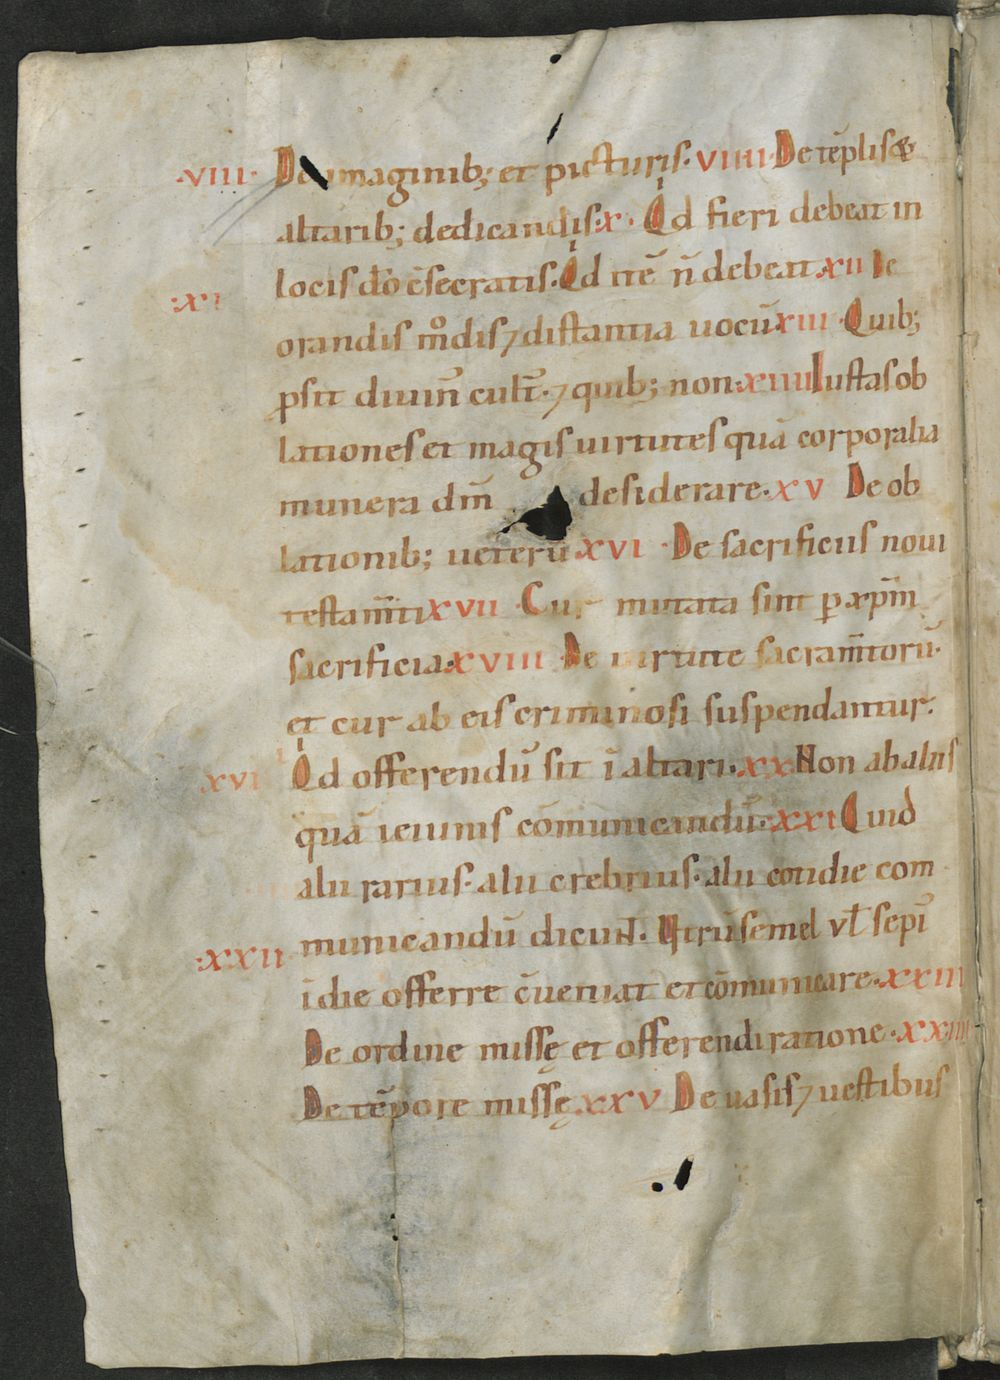 ·VIII· De imaginib; et picturis· VIIII· De tēplis &
altarib; dedicandis· X· Qd fieri debeat in
locis dō c̄secratis· Qd itē n̄ debeat XII De
:XI orandis mōdis ⁊ distantia uocū XIII Quib;
p̄sit diuin̄ cult̄· ⁊ quib; non· XIIII Iustas ob
lationes et magis uirtutes quā corporalia
munera dm̄ desiderare· XV De ob
lationib; ueterū XVI · De sacrificiis noui
testam̄ti XVII · Cur mutata sint p xp̄m
sacrificia· XVIII De uirtute sacram̄torū·
et cur ab eis criminosi suspendantur·
XVI Qd offerendū sit ī altari· XX Non ab aliis
quā ieiunis cōmunicandū· XXI Quid
alii rarius· alii crebrius· alii cotidie com
municandū dicunt. Utrū semel vł sepi᷒
:XXII ī die offerre c̄ueniat et cōmunicare· XXIII
De ordine missę et offerendi ratione· XXIIII
De tēpore missę XXV De uasis ⁊ uestibus